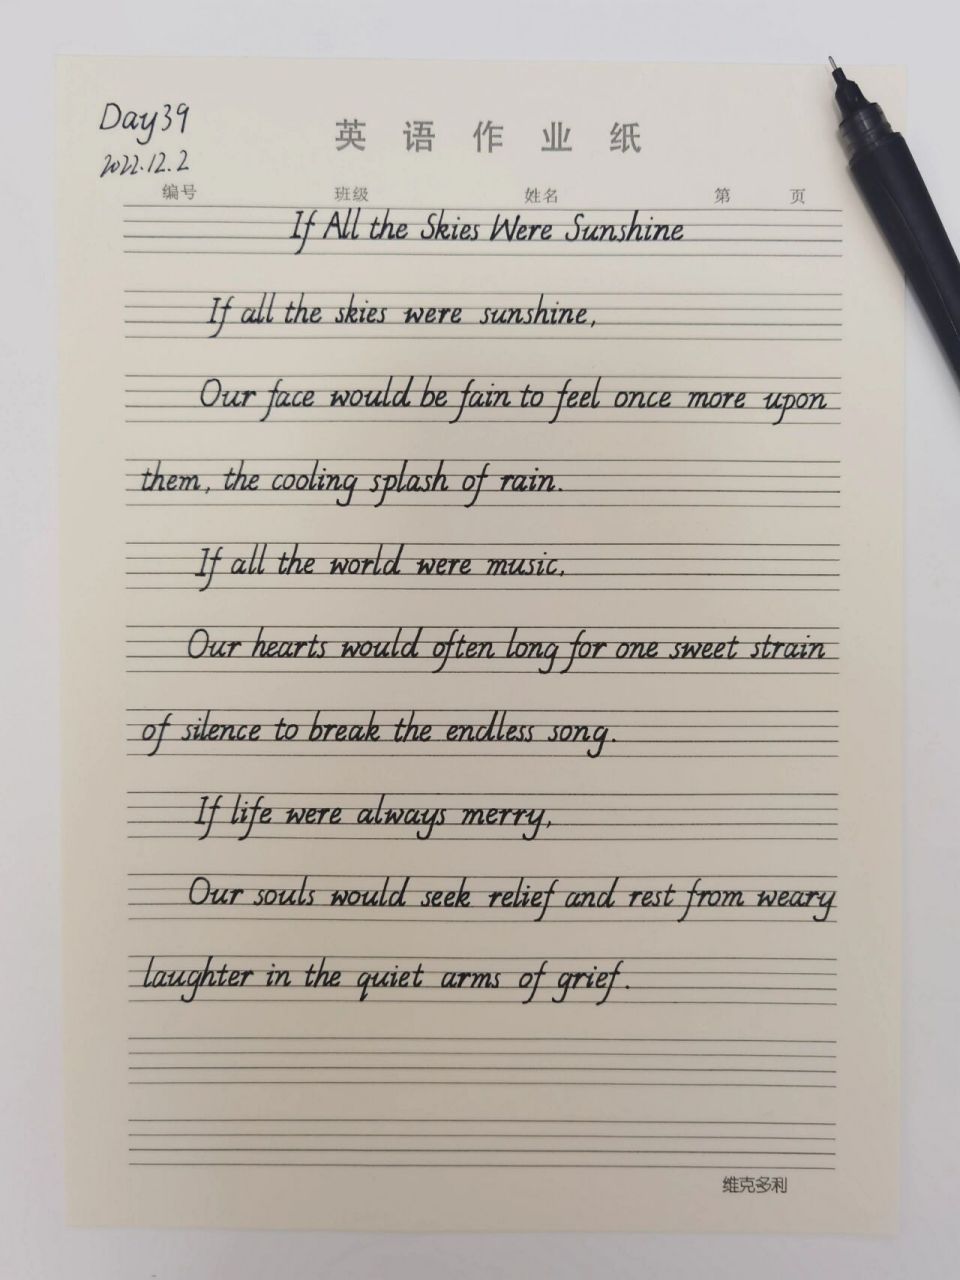 Day39
2022.12.2
英语作业纸
编号 班级 姓名 第 页
If All the Skies Were Sunshine
If all the skies were sunshine,
Our face would be fain to feel once more upon
them, the cooling splash of rain.
If all the world were music,
Our hearts would often long for one sweet strain
of silence to break the endless song.
If life were always merry,
Our souls would seek relief and rest from weary
laughter in the quiet arms of grief.
维克多利